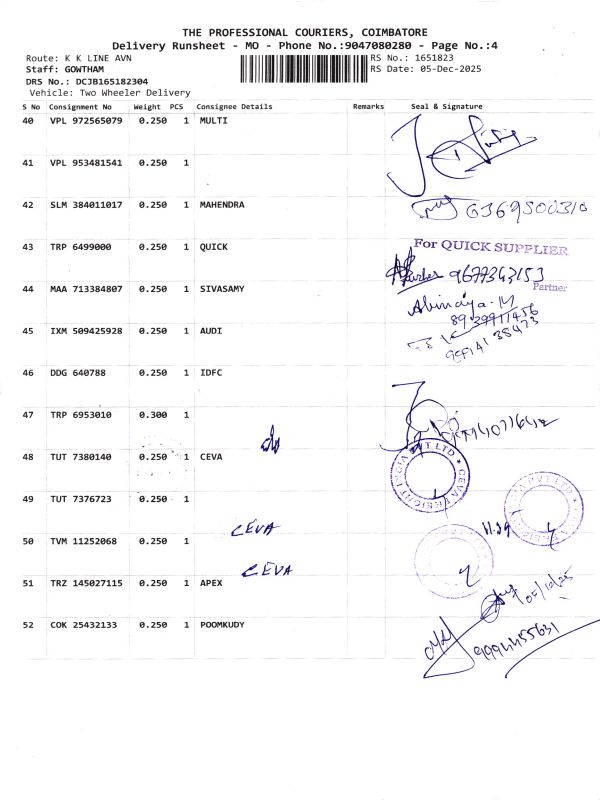 THE PROFESSIONAL COURIERS, COIMBATORE
Delivery Runsheet - MO - Phone No.:9047080280 - Page No.:4
Route: K K LINE AVN
RS No.: 1651823
Staff: GOWTHAM
RS Date: 05-Dec-2025
DRS No.: DCJB165182304
Vehicle: Two Wheeler Delivery
S No Consignment No Weight PCS Consignee Details Remarks Seal & Signature
40 VPL 972565079 0.250 1 MULTI
41 VPL 953481541 0.250 1
42 SLM 384011017 0.250 1 MAHENDRA
6369500310
43 TRP 6499000 0.250 1 QUICK
For QUICK SUPPLIER
9677363153
Partner
44 MAA 713384807 0.250 1 SIVASAMY
Abinaya.M
8939911456
45 IXM 509425928 0.250 1 AUDI
46 DDG 640788 0.250 1 IDFC
47 TRP 6953010 0.300 1
48 TUT 7380140 0.250 1 CEVA
49 TUT 7376723 0.250 1
CEVA
11.29
50 TVM 11252068 0.250 1
CEVA
51 TRZ 145027115 0.250 1 APEX
52 COK 25432133 0.250 1 POOMKUDY
9994455631